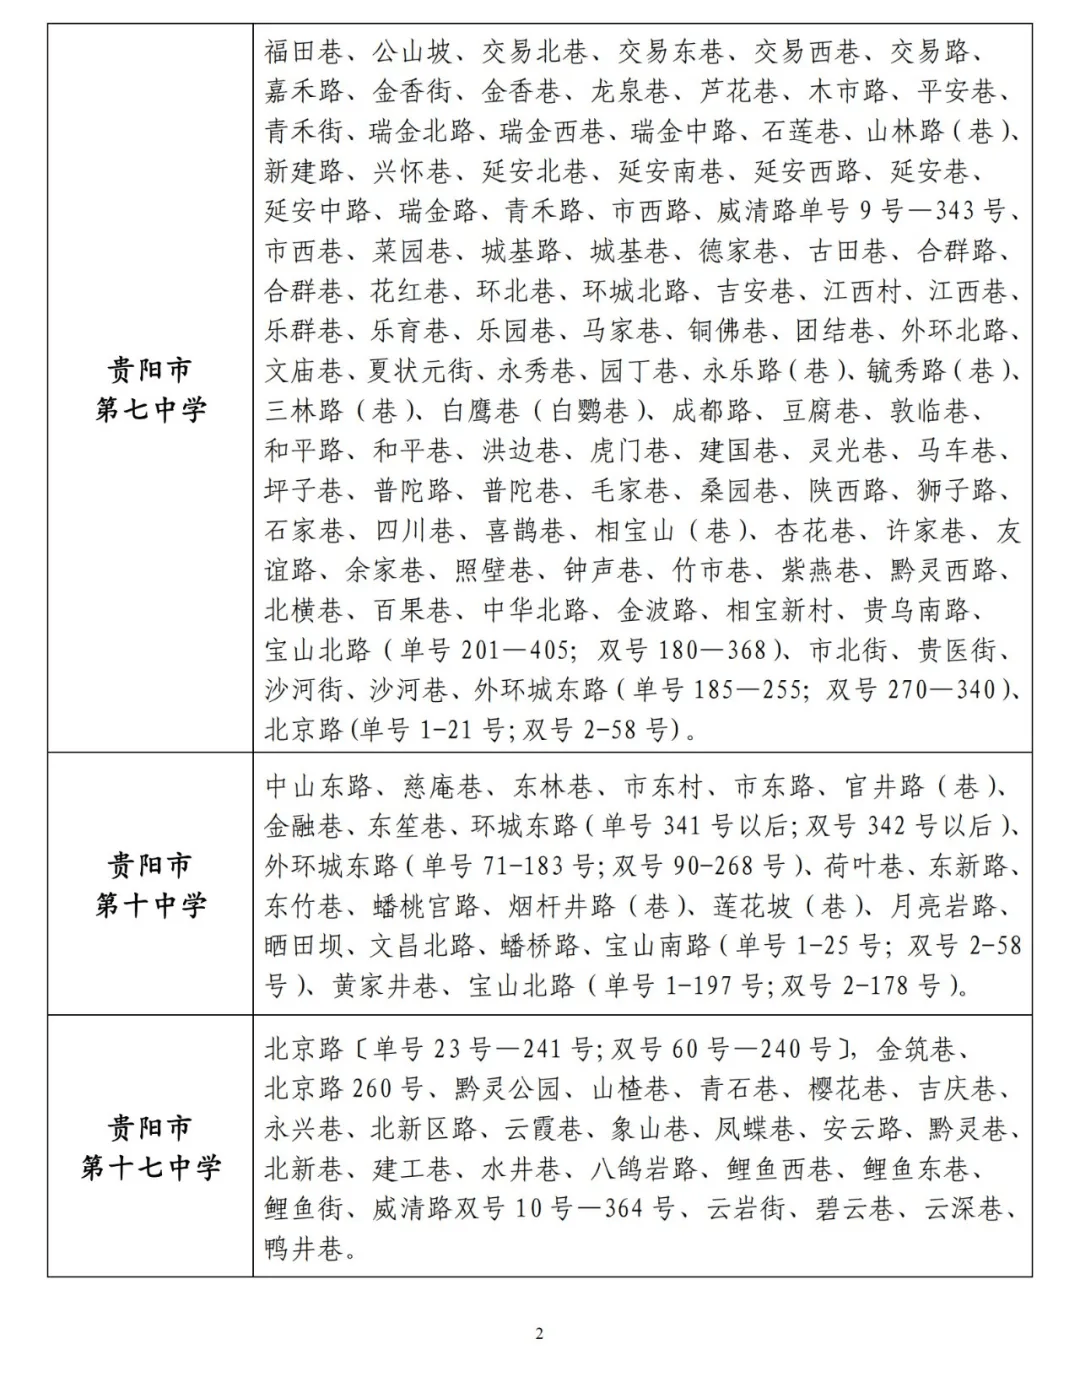 贵阳市
第七中学
福田巷、公山坡、交易北巷、交易东巷、交易西巷、交易路、
嘉禾路、金香街、金香巷、龙泉巷、芦花巷、木市路、平安巷、
青禾街、瑞金北路、瑞金西巷、瑞金中路、石莲巷、山林路(巷)、
新建路、兴怀巷、延安北巷、延安南巷、延安西路、延安巷、
延安中路、瑞金路、青禾路、市西路、威清路单号9号—343号、
市西巷、菜园巷、城基路、城基巷、德家巷、古田巷、合群路、
合群巷、花红巷、环北巷、环城北路、吉安巷、江西村、江西巷、
乐群巷、乐育巷、乐园巷、马家巷、铜佛巷、团结巷、外环北路、
文庙巷、夏状元街、永秀巷、园丁巷、永乐路(巷)、毓秀路(巷)、
三林路(巷)、白鹰巷(白鹦巷)、成都路、豆腐巷、敦临巷、
和平路、和平巷、洪边巷、虎门巷、建国巷、灵光巷、马车巷、
坪子巷、普陀路、普陀巷、毛家巷、桑园巷、陕西路、狮子路、
石家巷、四川巷、喜鹊巷、相宝山(巷)、杏花巷、许家巷、友
谊路、余家巷、照壁巷、钟声巷、竹市巷、紫燕巷、黔灵西路、
北横巷、百果巷、中华北路、金波路、相宝新村、贵乌南路、
宝山北路(单号201—405;双号180—368)、市北街、贵医街、
沙河街、沙河巷、外环城东路(单号185—255;双号270—340)、
北京路(单号1-21号;双号2-58号)。
贵阳市
第十中学
中山东路、慈庵巷、东林巷、市东村、市东路、官井路(巷)、
金融巷、东笙巷、环城东路(单号341号以后;双号342号以后)、
外环城东路(单号71-183号;双号90-268号)、荷叶巷、东新路、
东竹巷、蟠桃官路、烟杆井路(巷)、莲花坡(巷)、月亮岩路、
晒田坝、文昌北路、蟠桥路、宝山南路(单号1-25号;双号2-58
号)、黄家井巷、宝山北路(单号1-197号;双号2-178号)。
贵阳市
第十七中学
北京路〔单号23号—241号;双号60号—240号〕,金筑巷、
北京路260号、黔灵公园、山楂巷、青石巷、樱花巷、吉庆巷、
永兴巷、北新区路、云霞巷、象山巷、凤蝶巷、安云路、黔灵巷、
北新巷、建工巷、水井巷、八鸽岩路、鲤鱼西巷、鲤鱼东巷、
鲤鱼街、威清路双号10号—364号、云岩街、碧云巷、云深巷、
鸭井巷。
2